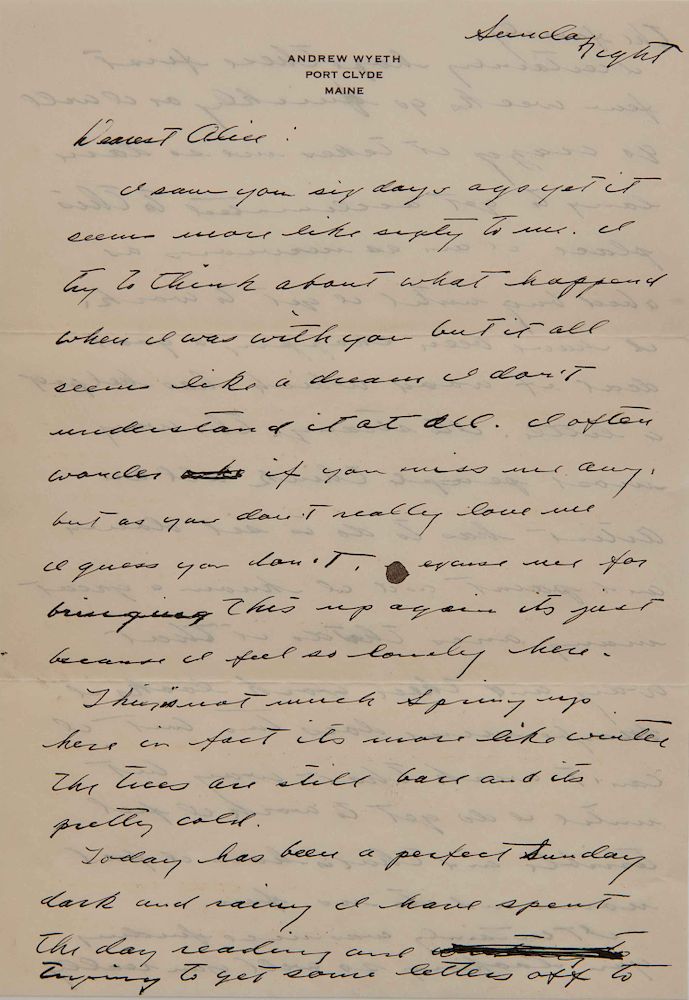 Sunday
night
ANDREW WYETH
PORT CLYDE
MAINE
Dearest Alice:
I saw you six days ago yet it
seems more like sixty to me. I
try to think about what happend
when I was with you but it all
seems like a dream I don't
understand it at all. I often
wonder if you miss me any.
but as you don't really love me
I guess you don't. excuse me for
bringing this up again its just
because I feel so lonely here.
This is not much Spring up
here in fact its more like winter
the trees are still bare and its
pretty cold.
Today has been a perfect Sunday
dark and rainy I have spent
the day reading and
trying to get some letters off to